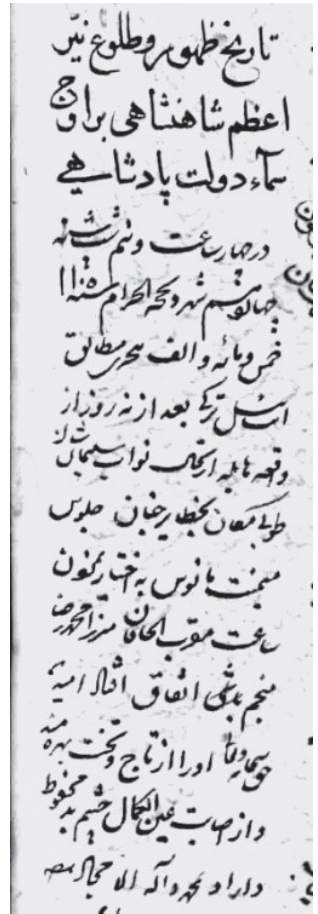 تاریخ ظهور و طلوع نیّر
اعظم شاهنشاهی بر اوج
سماء دولت پادشاهی
در چهار ساعت و نیم شب شنبه
چهاردهم شهر ذیحجة الحرام سنه ١١
خمس و مائه و الف هجری مطابق
ایت ئیل ترکی بعد از نه روز از
واقعه هایله ارتحال نواب سلیمان شان
طوبی مکان بحظایر جنان جلوس
میمنت مانوس به اختیار
ساعت مقرب الخاقان میرزا محمد رضا
منجم باشی اتفاق افتاد امید
او را از تاج و تخت بهره مند
و از اصابت عین الکمال چشم بد محفوظ
داراد بمحمد و آله الامجاد